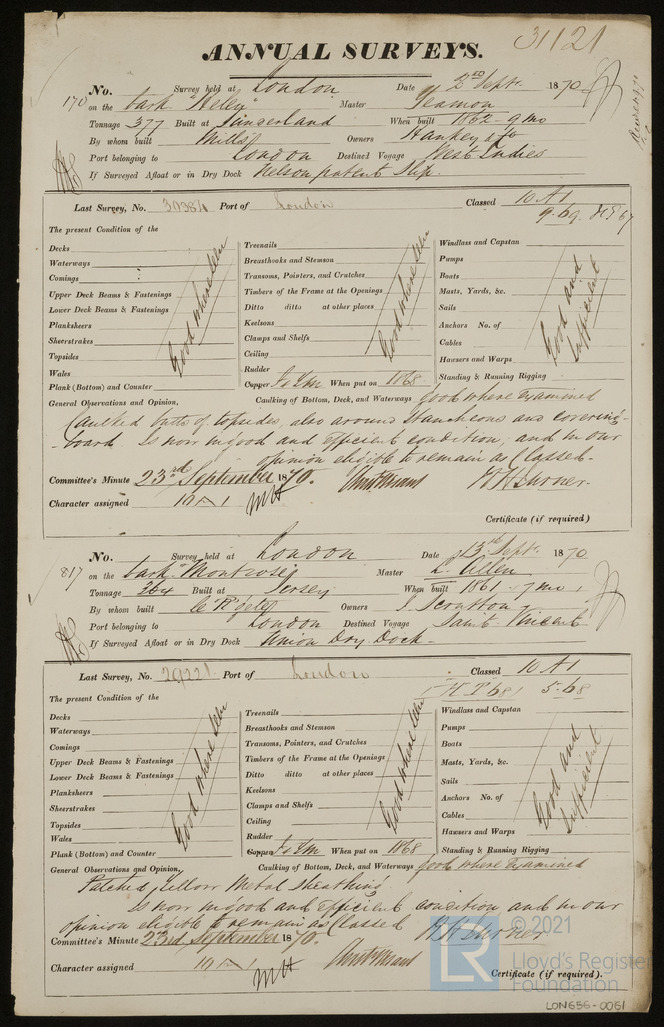 31121
ANNUAL SURVEYS.
170
No. Survey held at London Date 2nd Sept. 1870
on the bark "Heley" Master Yeamon
Tonnage 377 Built at Sunderland When built 1862 - 9 mo
By whom built Mills Owners Hankey & Co
Port belonging to London Destined Voyage West Indies
If Surveyed Afloat or in Dry Dock Nelson patent Slip.
Last Survey, No. Port of London Classed 10 A1
9.69.
The present Condition of the
Decks Treenails Windlass and Capstan
Waterways Breasthooks and Stemson Pumps
Comings Transoms, Pointers, and Crutches Boats
Upper Deck Beams & Fastenings Timbers of the Frame at the Openings Masts, Yards, &c.
Lower Deck Beams & Fastenings Ditto ditto at other places Sails
Planksheers Keelsons Anchors No. of
Sheerstrakes Clamps and Shelfs Cables
Topsides Ceiling Hawsers and Warps
Wales Rudder Standing & Running Rigging
Good where seen Good where seen Good and Sufficient
Plank (Bottom) and Counter Copper When put on 1868
General Observations and Opinion, Caulking of Bottom, Deck, and Waterways Good where Examined
Caulked butts of topsides, also around Stancheons and covering-
-board. Is now in good and efficient condition, and in our
opinion eligible to remain as Classed.
Committee's Minute 23rd September 1870.
Character assigned 10 A 1
Certificate (if required)
817
No. Survey held at London Date 13th Sept. 1870
on the bark "Montrose" Master L. Allen
Tonnage 264 Built at Jersey When built 1861 - 7 mo
By whom built Owners J. Scrutton
Port belonging to London Destined Voyage Saint Vincent
If Surveyed Afloat or in Dry Dock Union Dry Dock
Last Survey, No. 29221 Port of London Classed 10 A1
5.68
The present Condition of the
Decks Treenails Windlass and Capstan
Waterways Breasthooks and Stemson Pumps
Comings Transoms, Pointers, and Crutches Boats
Upper Deck Beams & Fastenings Timbers of the Frame at the Openings Masts, Yards, &c.
Lower Deck Beams & Fastenings Ditto ditto at other places Sails
Planksheers Keelsons Anchors No. of
Sheerstrakes Clamps and Shelfs Cables
Topsides Ceiling Hawsers and Warps
Wales Rudder Standing & Running Rigging
Good where seen Good where seen Good and Sufficient
Plank (Bottom) and Counter Copper When put on 1868
General Observations and Opinion, Caulking of Bottom, Deck, and Waterways Good where Examined
Patched Yellow Metal Sheathing
Is now in good and efficient condition and in our
opinion eligible to remain as Classed
Committee's Minute 23rd September 1870.
Character assigned 10 A 1
Certificate (if required).
LR
© 2021
Lloyd's Register
Foundation
LON656-0061